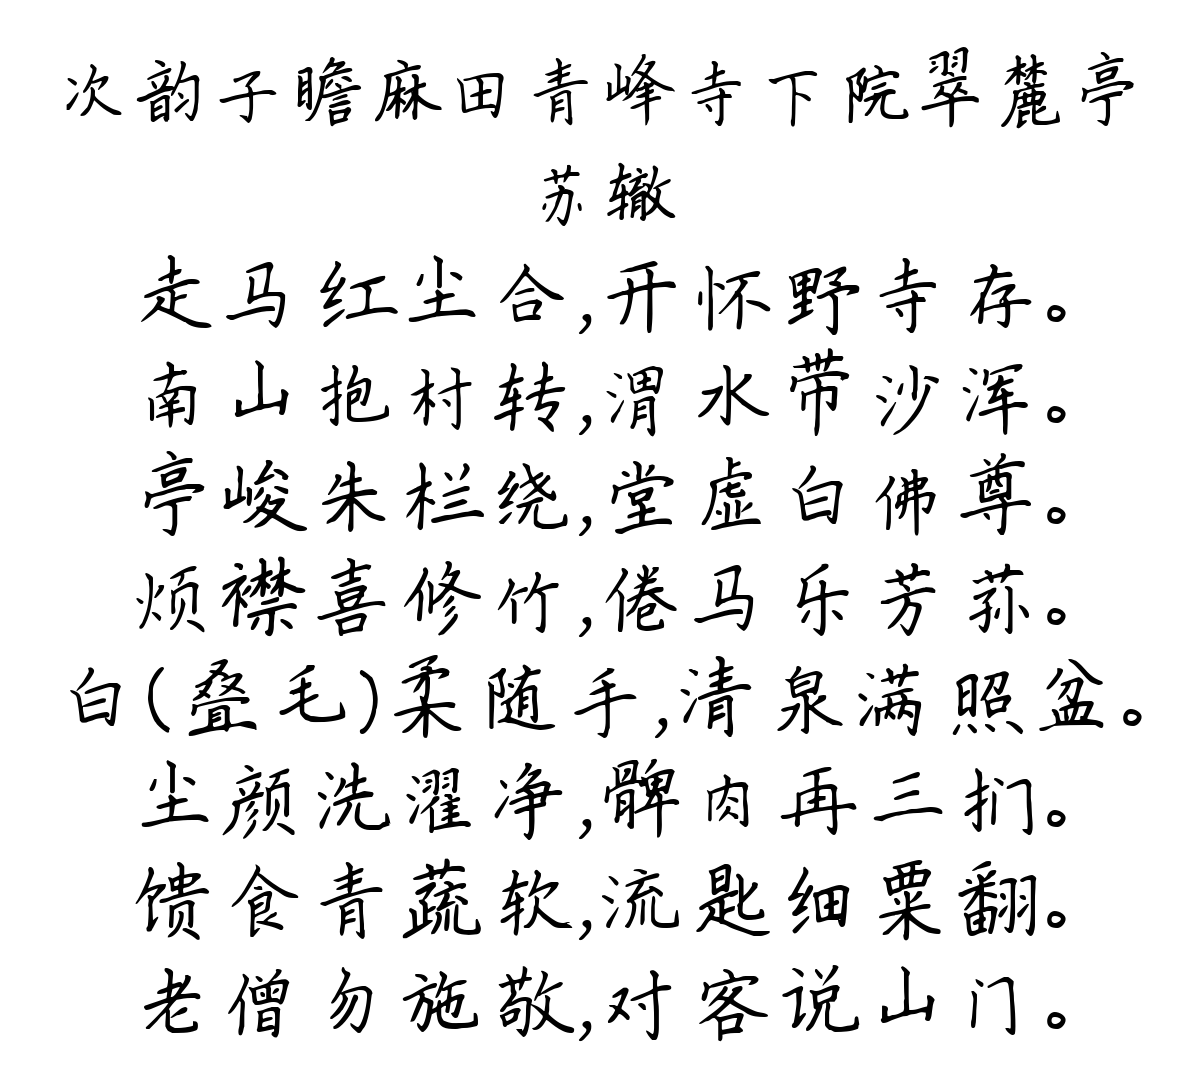 次韵子瞻麻田青峰寺下院翠麓亭
苏辙
走马红尘合,开怀野寺存。
南山抱村转,渭水带沙浑。
亭峻朱栏绕,堂虚白佛尊。
烦襟喜修竹,倦马乐芳荪。
白(叠毛)柔随手,清泉满照盆。
尘颜洗濯净,髀肉再三扪。
馈食青蔬软,流匙细粟翻。
老僧勿施敬,对客说山门。